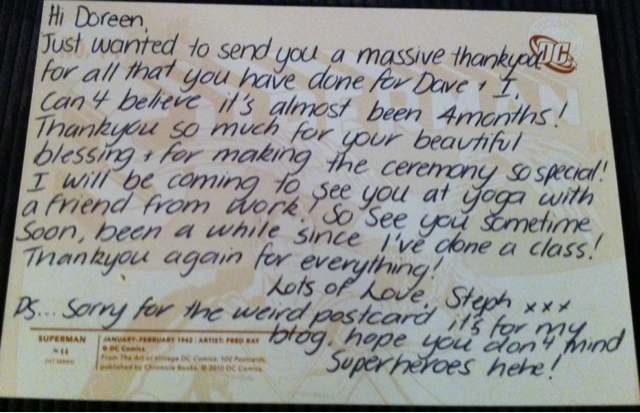 Hi Doreen,
Just wanted to send you a massive thankyou!
for all that you have done for Dave + I.
Can't believe it's almost been 4months!
Thankyou so much for your beautiful
blessing + for making the ceremony so special!
I will be coming to see you at yoga with
a friend from work! So see you sometime
soon, been a while since I've done a class!
Thankyou again for everything!
Lots of Love, Steph xxx
Ps... Sorry for the weird postcard it's for my
blog, hope you don't mind
Superheroes hehe!
DC
SUPERMAN
No 14
(1ST SERIES)
JANUARY–FEBRUARY 1942 | ARTIST: FRED RAY
© DC Comics
From The Art of Vintage DC Comics: 100 Postcards,
published by Chronicle Books. © 2010 DC Comics.